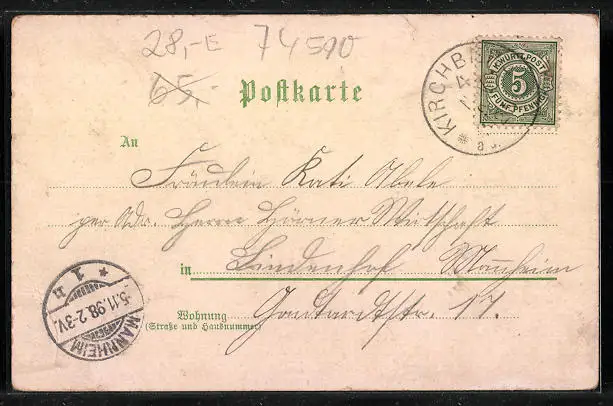 28,-E 74590
65.-
Postkarte
KIRCHB
K.WÜRTT.POST
5
FÜNF PFENNIG
An
Fräulein Kati Abele
per Adr. Herrn Hörner Wirtschaft
in Lindenhof Mannheim
Wohnung
(Straße und Hausnummer)
Gontardtstr. 17.
MANNHEIM
5.11.98.2-3V.
* 1 n